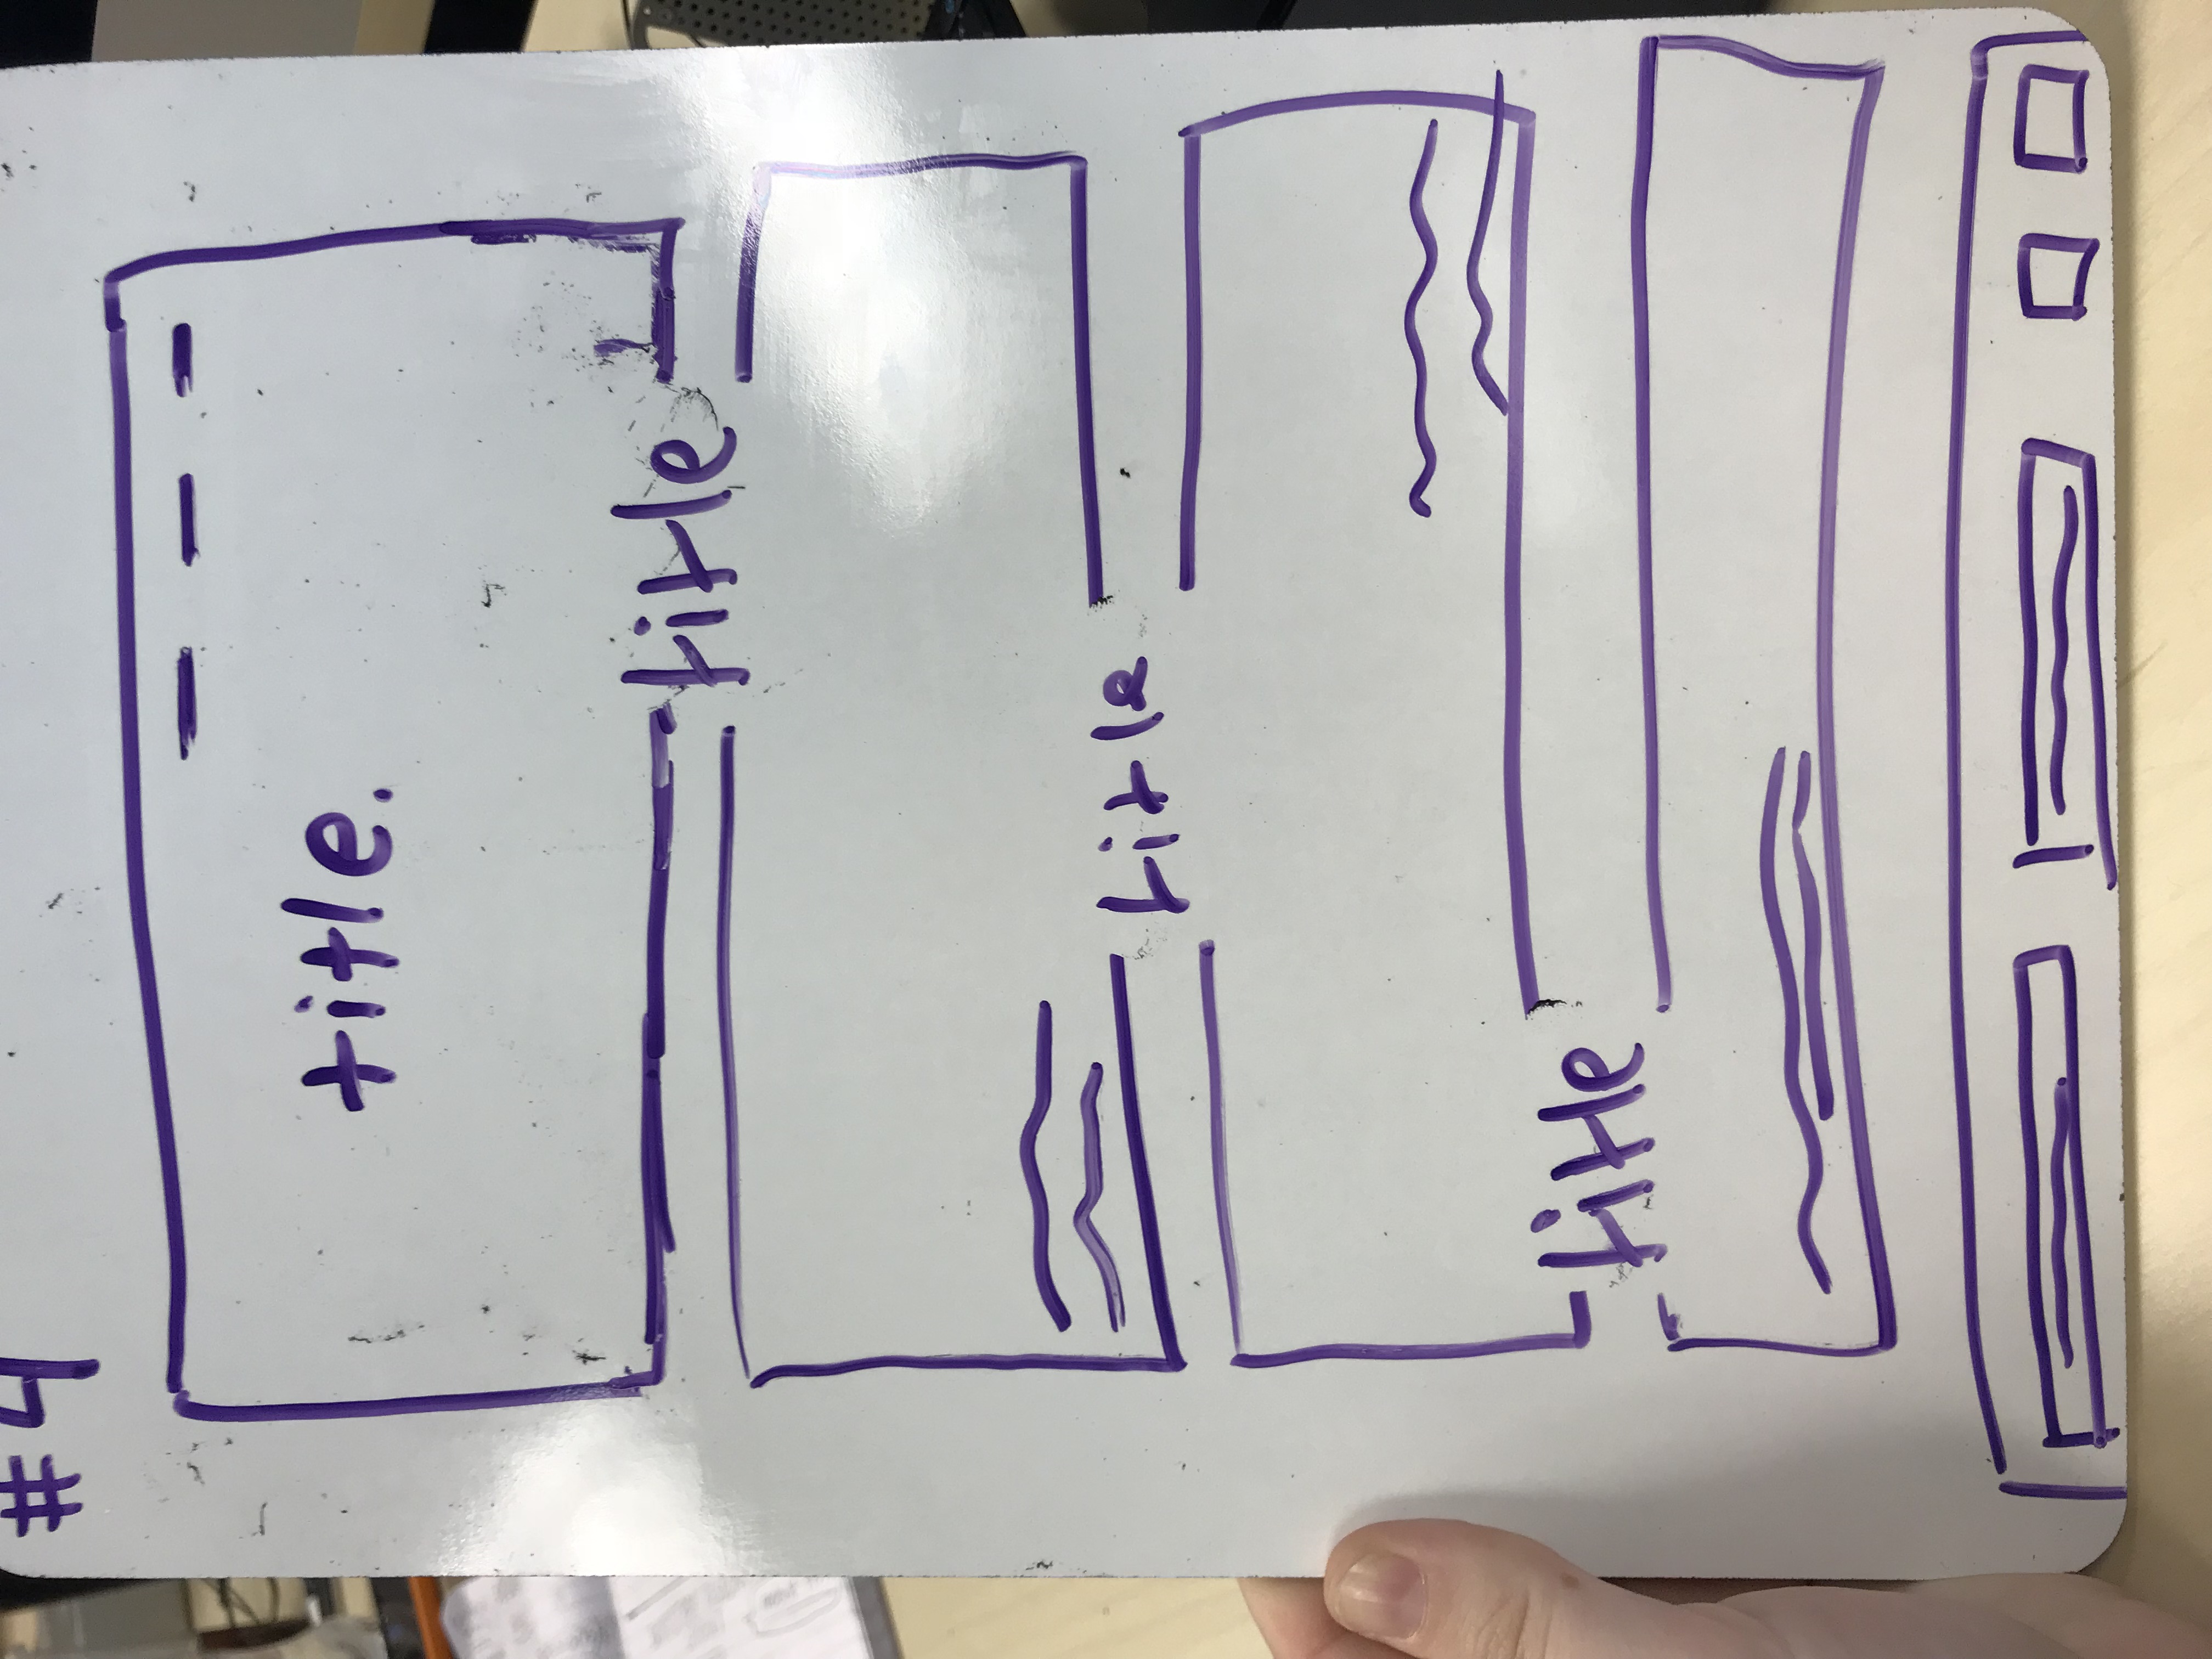 #4
title.
title
title
title